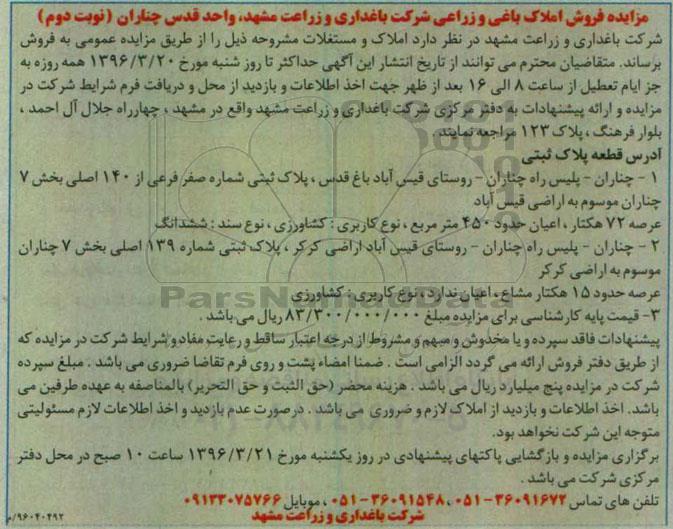 مزایده فروش املاک باغی و زراعی شرکت باغداری و زراعت مشهد، واحد قدس چناران (نوبت دوم)
شرکت باغداری و زراعت مشهد در نظر دارد املاک و مستغلات مشروحه ذیل را از طریق مزایده عمومی به فروش
برساند. متقاضیان محترم می توانند از تاریخ انتشار این آگهی حداکثر تا روز شنبه مورخ ۱۳۹۶/۳/۲۰ همه روزه به
جز ایام تعطیل از ساعت ۸ الی ۱۶ بعد از ظهر جهت اخذ اطلاعات و بازدید از محل و دریافت فرم شرایط شرکت در
مزایده و ارائه پیشنهادات به دفتر مرکزی شرکت باغداری و زراعت مشهد واقع در مشهد ، چهارراه جلال آل احمد ،
بلوار فرهنگ ، پلاک ۱۲۳ مراجعه نمایند.
آدرس قطعه پلاک ثبتی
۱ - چناران - پلیس راه چناران - روستای قیس آباد باغ قدس ، پلاک ثبتی شماره صفر فرعی از ۱۴۰ اصلی بخش ۷
چناران موسوم به اراضی قیس آباد
عرصه ۷۲ هکتار ، اعیان حدود ۴۵۰ متر مربع ، نوع کاربری : کشاورزی ، نوع سند : ششدانگ
۲ - چناران - پلیس راه چناران - روستای قیس آباد اراضی کرکر ، پلاک ثبتی شماره ۱۳۹ اصلی بخش ۷ چناران
موسوم به اراضی کرکر
عرصه حدود ۱۵ هکتار مشاع ، اعیان ندارد ، نوع کاربری : کشاورزی
۳- قیمت پایه کارشناسی برای مزایده مبلغ ۸۳/۳۰۰/۰۰۰/۰۰۰ ریال می باشد .
پیشنهادات فاقد سپرده و یا مخدوش و مبهم و مشروط از درجه اعتبار ساقط و رعایت مفاد و شرایط شرکت در مزایده که
از طریق دفتر فروش ارائه می گردد الزامی است . ضمنا امضاء پشت و روی فرم تقاضا ضروری می باشد . مبلغ سپرده
شرکت در مزایده پنج میلیارد ریال می باشد . هزینه محضر (حق الثبت و حق التحریر) بالمناصفه به عهده طرفین می
باشد. اخذ اطلاعات و بازدید از املاک لازم و ضروری می باشد . درصورت عدم بازدید و اخذ اطلاعات لازم مسئولیتی
متوجه این شرکت نخواهد بود.
برگزاری مزایده و بازگشایی پاکتهای پیشنهادی در روز یکشنبه مورخ ۱۳۹۶/۳/۲۱ ساعت ۱۰ صبح در محل دفتر
مرکزی شرکت می باشد .
تلفن های تماس ۳۶۰۹۱۶۷۲-۰۵۱ ، ۳۶۰۹۱۵۴۸-۰۵۱ ، موبایل ۰۹۱۳۳۰۷۵۷۶۶
شرکت باغداری و زراعت مشهد
۹۶۰۴۰۴۹۲/م
ParsNamadData